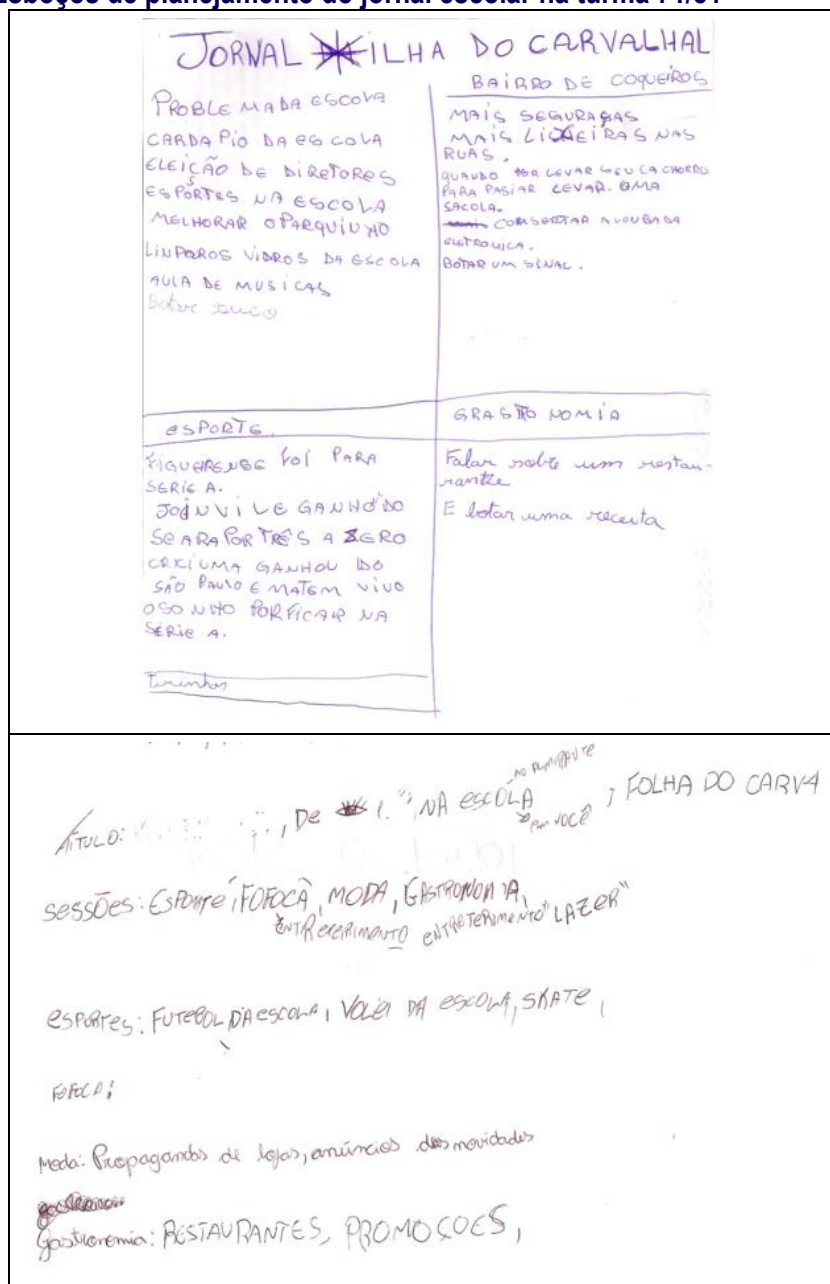 JORNAL ILHA DO CARVALHAL
PROBLEMA DA ESCOLA
CARDAPIO DA ESCOLA
ELEIÇÃO DE DIRETORES
ESPORTES NA ESCOLA
MELHORAR O PARQUINHO
LINPAR OS VIDROS DA ESCOLA
AULA DE MUSICAS
Botar suco
BAIRRO DE COQUEIROS
MAIS SEGURAÇAS
MAIS LIXEIRAS NAS
RUAS.
QUANDO FOR LEVAR SEU CACHORRO
PARA PASIAR LEVAR UMA
SACOLA.
COMSERTAR A LOUBADA
ELETRONICA.
BOTAR UM SINAL.
ESPORTE
FIGUEIRENSE FOI PARA
SERIE A.
JOINVILE GANHO DO
SEARA POR TRÊS A ZERO
CRICIUMA GANHOU DO
SÃO PAULO E MATEM VIVO
O SONHO POR FICAR NA
SÉRIE A.
Tirinhas
GRASTONOMIA
Falar sobre um restau-
rantte
E botar uma receita
TITULO: , De 1. NA ESCOLA ; FOLHA DO CARVA
VOCÊ
SESSÕES: ESPORTE, FOFOCA, MODA, GASTRONOMIA,
ENTRETERIMENTO "LAZER"
ESPORTES: FUTEBOL DA ESCOLA, VOLEI DA ESCOLA, SKATE,
FOFOCA:
Moda: Propagandas de lojas, anúncios das novidades
Gastronomia: RESTAURANTES, PROMOÇOES,